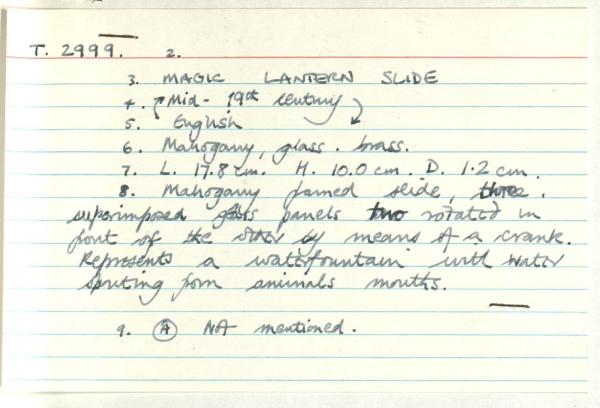 T. 2999. 2.
3. MAGIC LANTERN SLIDE
4. Mid-19th century
5. English
6. Mahogany, glass. brass.
7. L. 17.8 cm. H. 10.0 cm. D. 1.2 cm.
8. Mahogany framed slide, three.
superimposed glass panels two rotated in
front of the other by means of a crank.
Represents a waterfountain with water
spouting from animals mouths.
9. A Not mentioned.